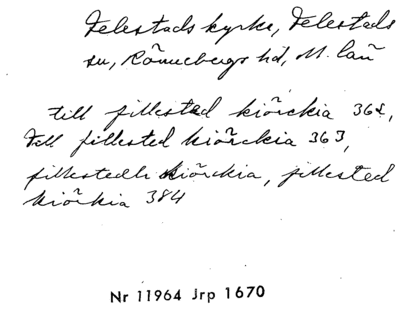 Felestads kyrka, Felestads
sn, Rönnebergs hd, M. län
till fillestad kiörckia 362,
till fillested kiörckia 363,
fillestedh kiörckia, fillested
kiörkia 384
Nr 11964 Jrp 1670